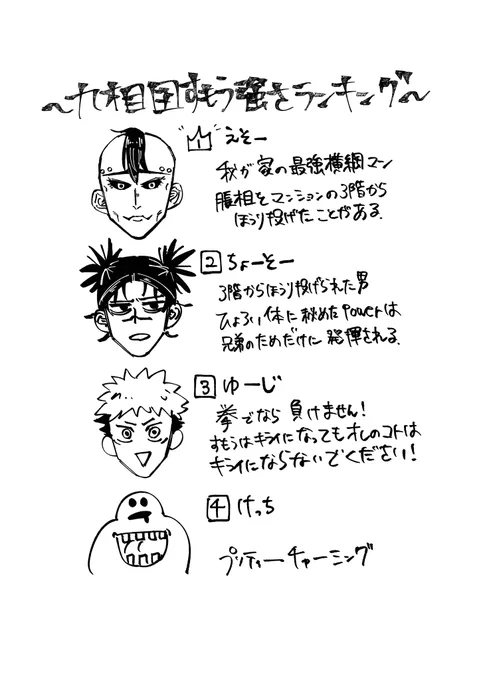 ～九相図すもう強さランキング～
1 えそー
我が家の最強横綱マン
脹相をマンションの3階から
ほうり投げたことがある.
2 ちょーそー
3階からほうり投げられた男
ひょろい体に秘めたPowerは
兄弟のためだけに発揮される.
3 ゆーじ
拳でなら負けません!
すもうはキライになってもオレのコトは
キライにならないでください!
4 けっち
プリティーチャーミング